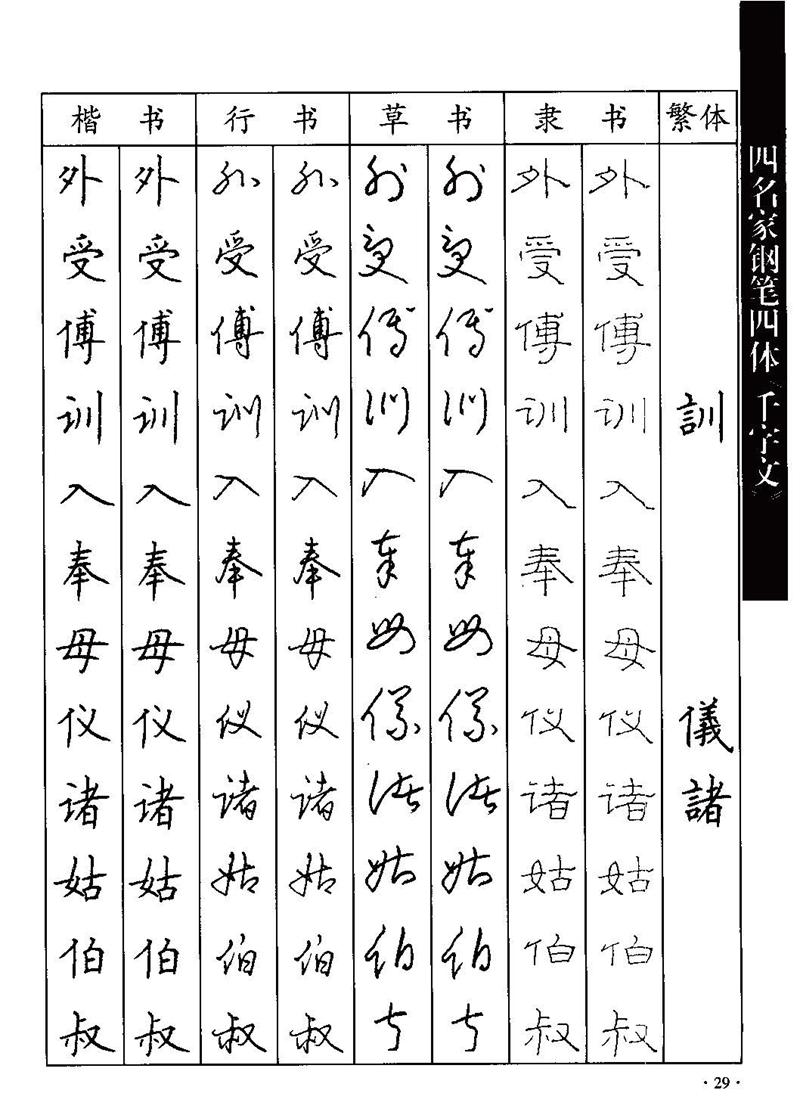 楷书 行书 草书 隶书 繁体
外 外 外 外 外 外 外 外
受 受 受 受 受 受 受 受
傅 傅 傅 傅 傅 傅 傅 傅
训 训 训 训 训 训 训 训 訓
入 入 入 入 入 入 入 入
奉 奉 奉 奉 奉 奉 奉 奉
母 母 母 母 母 母 母 母
仪 仪 仪 仪 儀 儀 仪 仪 儀
诸 诸 诸 诸 诸 诸 诸 诸 諸
姑 姑 姑 姑 姑 姑 姑 姑
伯 伯 伯 伯 伯 伯 伯 伯
叔 叔 叔 叔 叔 叔 叔 叔
四名家钢笔四体《千字文》
·29·